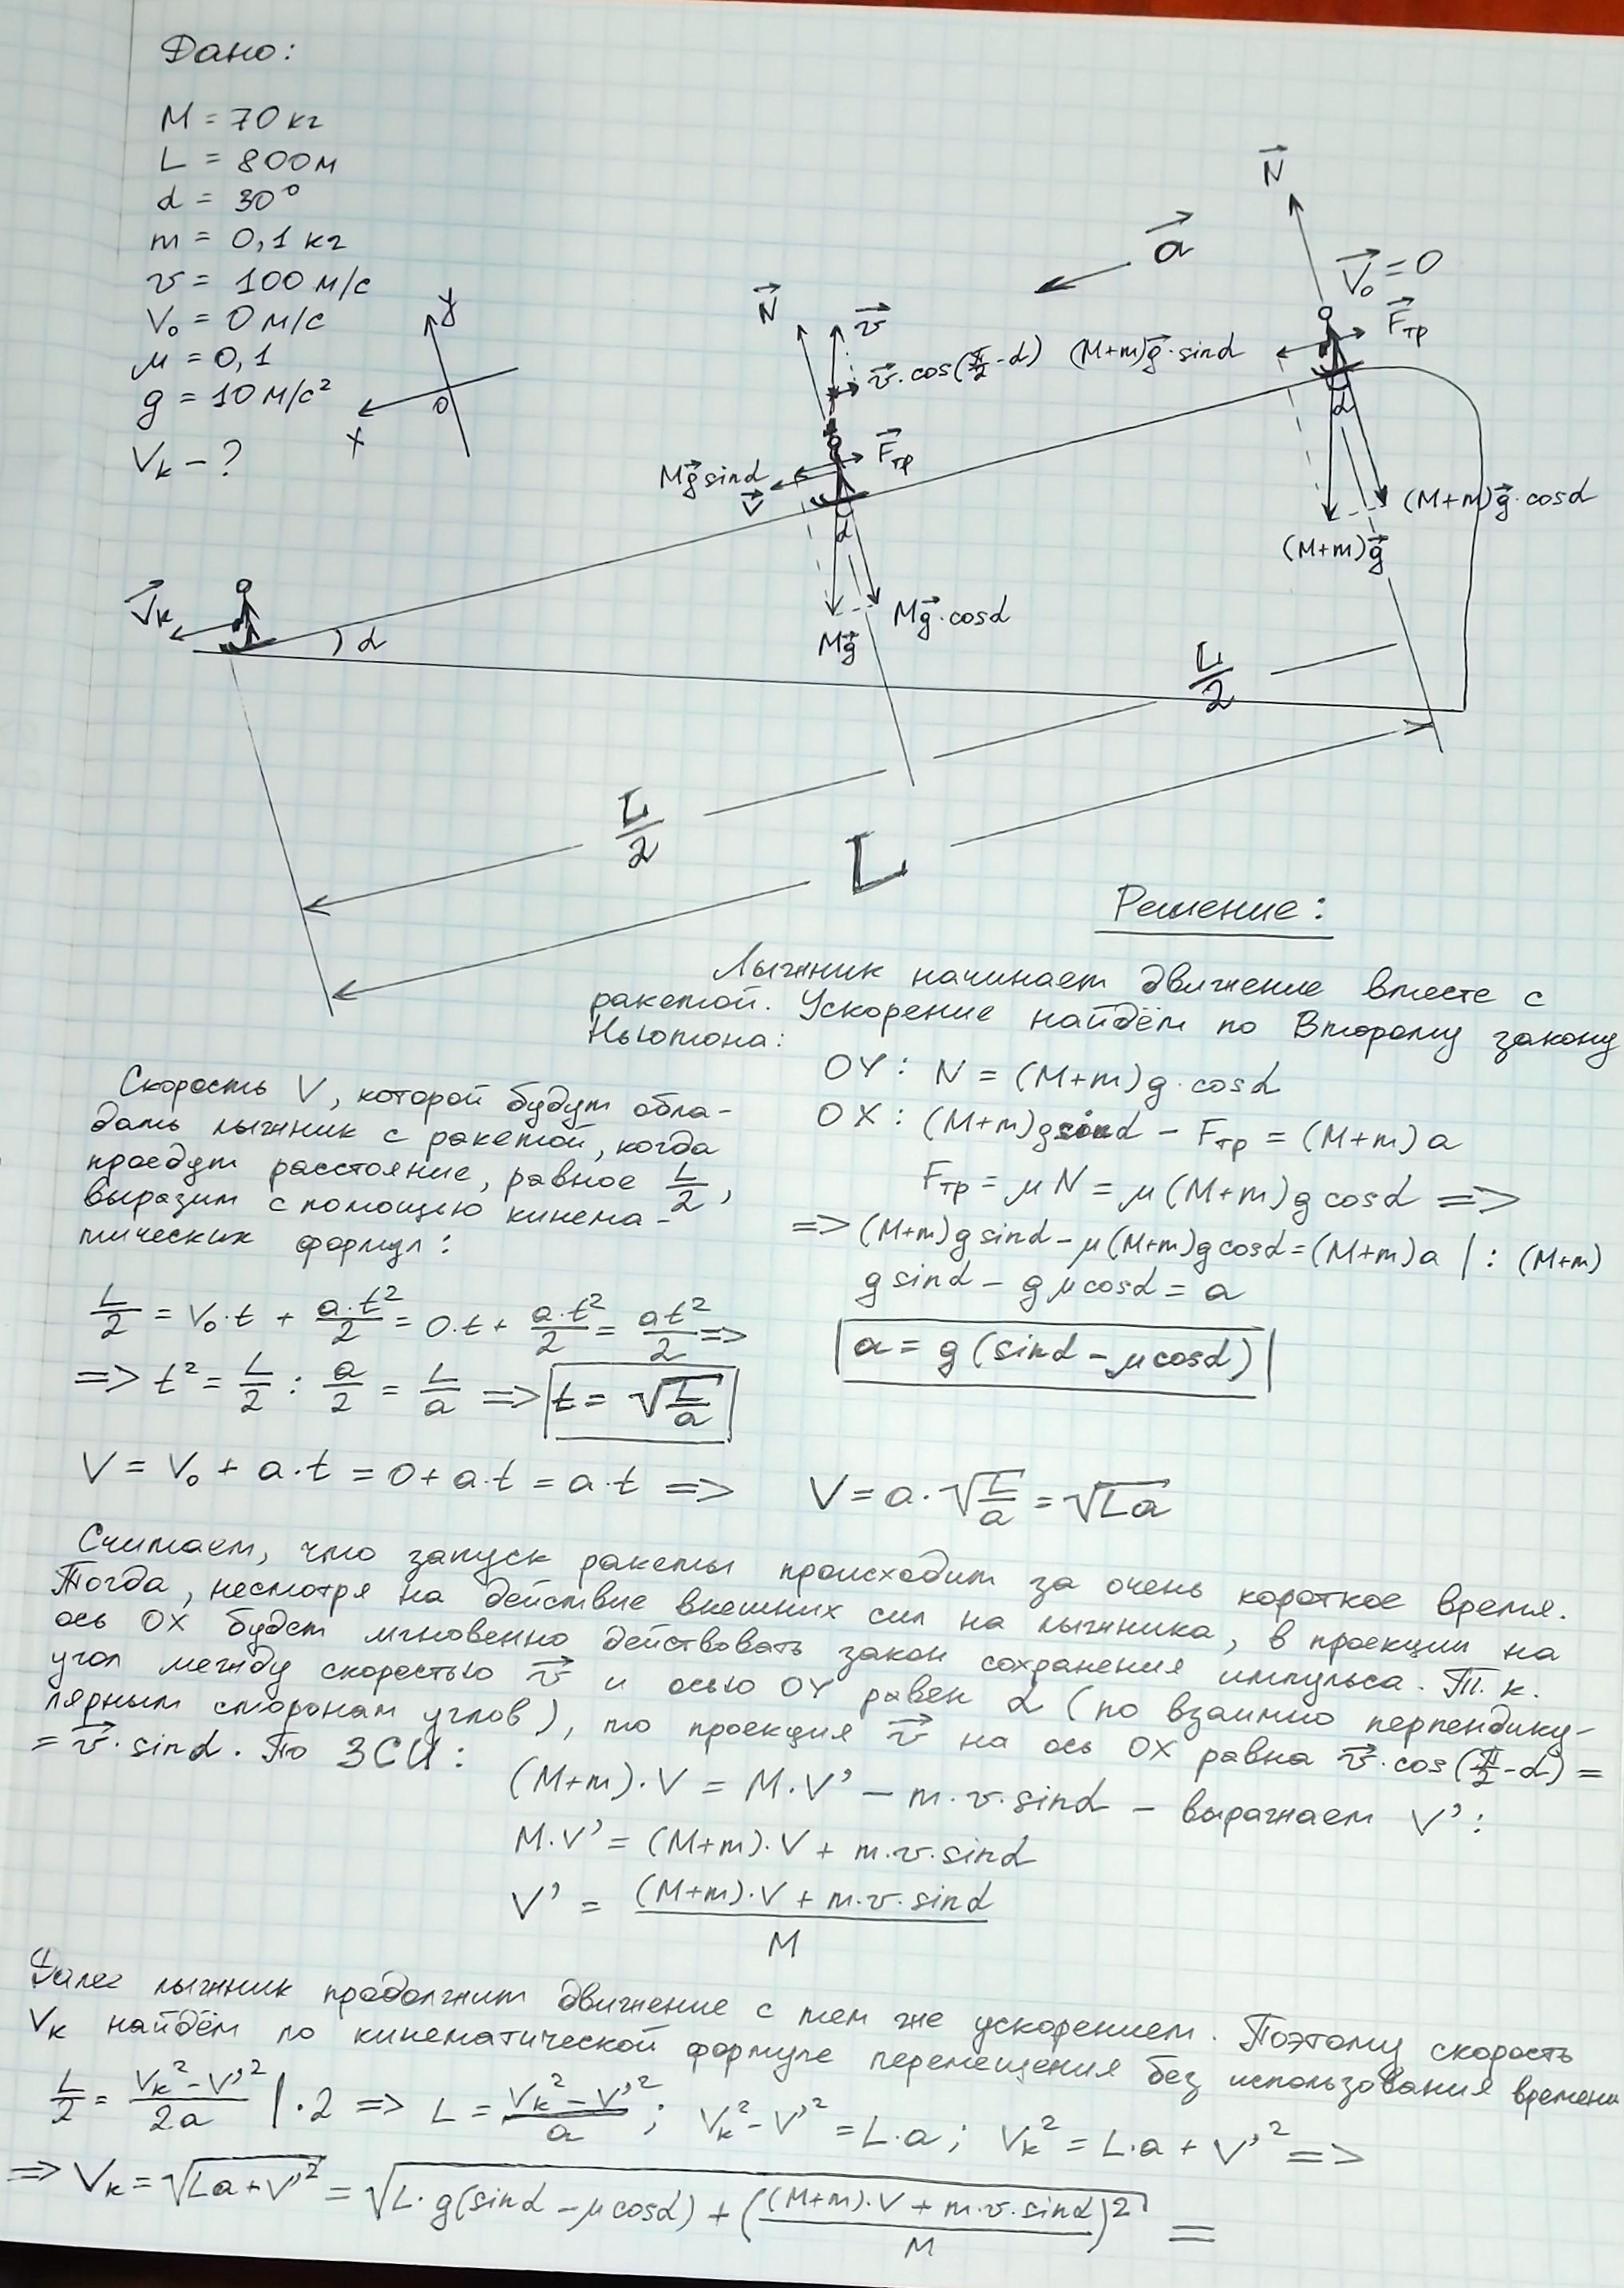 Дано:
M = 70 кг
L = 800 м
α = 30°
m = 0,1 кг
v = 100 м/с
V₀ = 0 м/с
μ = 0,1
g = 10 м/с²
Vк - ?
y
x
0
N⃗
v⃗
v⃗·cos(π/2-α)
F⃗тр
Mg⃗sinα
V⃗
α
Mg⃗·cosα
Mg⃗
a⃗
N⃗
V⃗₀=0
F⃗тр
(M+m)g⃗·sinα
α
(M+m)g⃗·cosα
(M+m)g⃗
V⃗к
α
L/2
L/2
L
Решение:
Лыжник начинает движение вместе с
ракетой. Ускорение найдём по Второму закону
Ньютона:
OY: N = (M+m)g·cosα
OX: (M+m)gsinα - Fтр = (M+m)a
Fтр = μN = μ(M+m)g cosα =>
=> (M+m)g sinα - μ(M+m)g cosα = (M+m)a |:(M+m)
g sinα - gμcosα = a
a = g(sinα - μcosα)
Скорость V, которой будут обла-
дать лыжник с ракетой, когда
проедут расстояние, равное L/2,
выразим с помощью кинема-
тических формул:
L/2 = V₀·t + a·t²/2 = 0·t + a·t²/2 = at²/2 =>
=> t² = L/2 : a/2 = L/a => t = √(L/a)
V = V₀ + a·t = 0 + a·t = a·t => V = a·√(L/a) = √(La)
Считаем, что запуск ракеты происходит за очень короткое время.
Тогда, несмотря на действие внешних сил на лыжника, в проекции на
ось OX будет мгновенно действовать закон сохранения импульса. Т.к.
угол между скоростью v⃗ и осью OY равен α (по взаимно перпендику-
лярным сторонам углов), то проекция v⃗ на ось OX равна v⃗·cos(π/2-α) =
= v⃗·sinα. По ЗСИ:
(M+m)·V = M·V' - m·v·sinα - выражаем V':
M·V' = (M+m)·V + m·v·sinα
V' = ((M+m)·V + m·v·sinα)/M
Далее лыжник продолжит движение с тем же ускорением. Поэтому скорость
Vк найдём по кинематической формуле перемещения без использования времени
L/2 = (Vк²-V'²)/2a |·2 => L = (Vк²-V'²)/a; Vк²-V'² = L·a; Vк² = L·a + V'² =>
=> Vк = √(La+V'²) = √(L·g(sinα - μcosα) + (((M+m)·V + m·v·sinα)/M)²) =